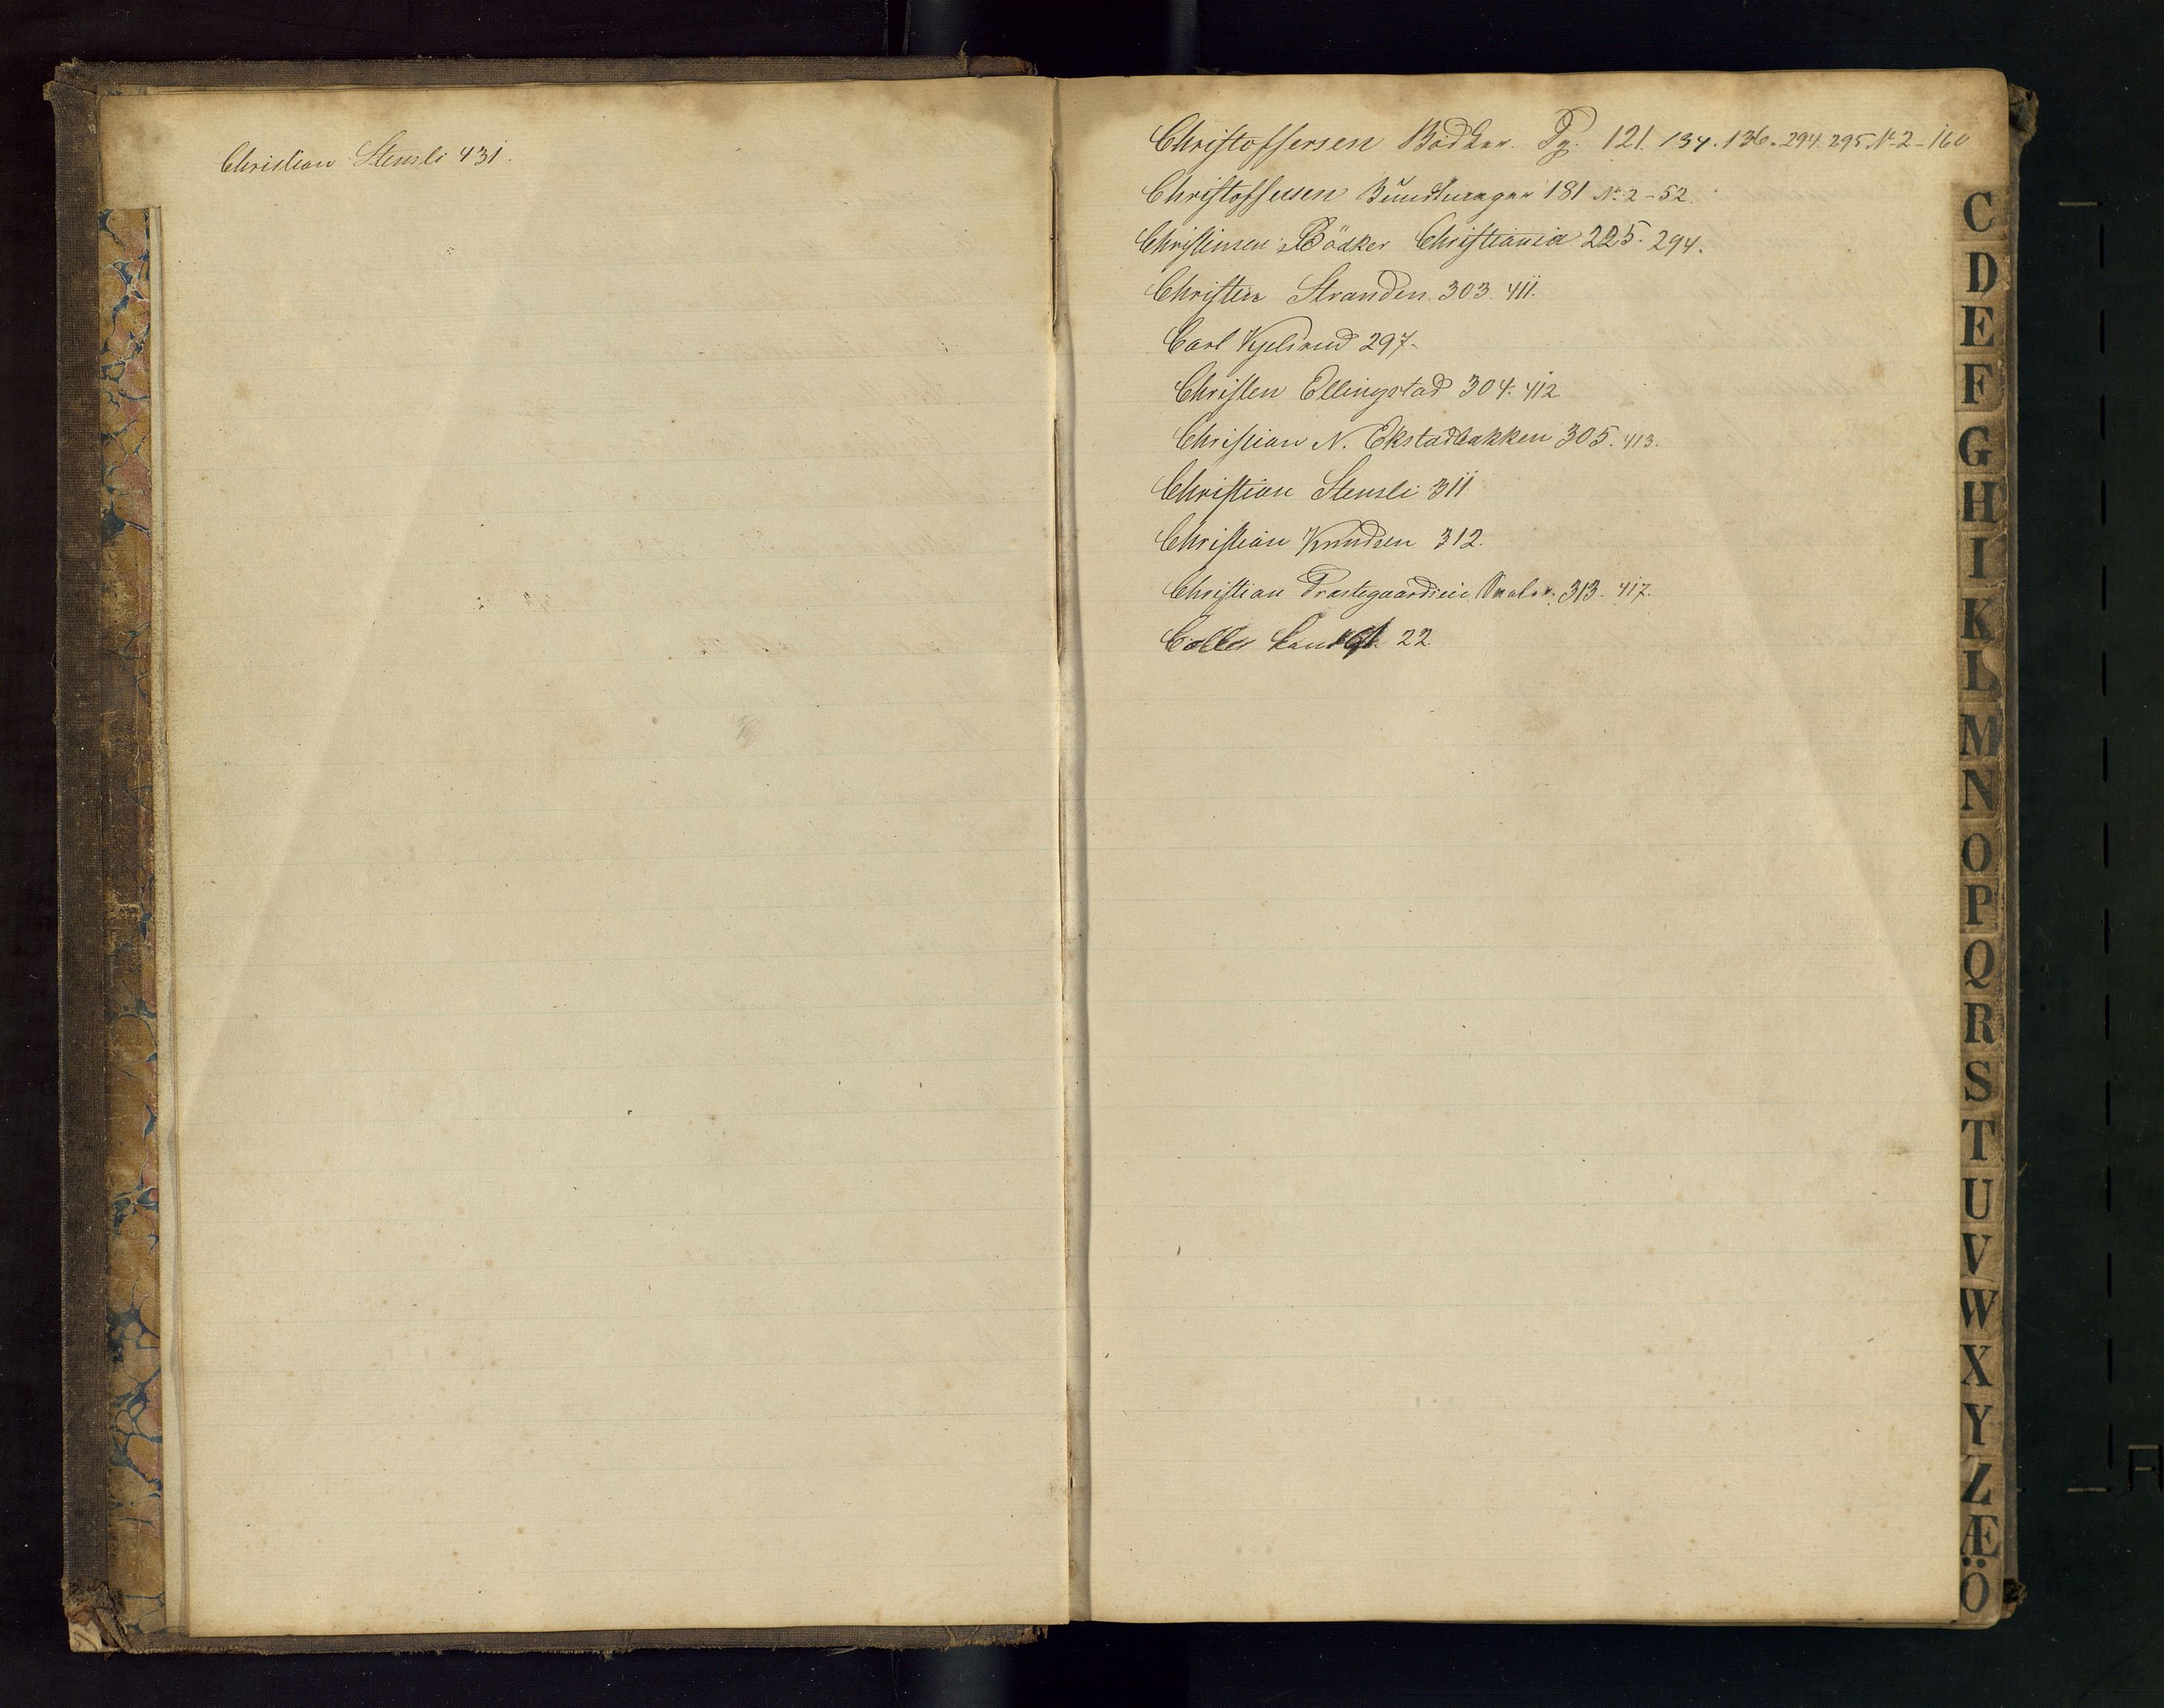 Christian Stensli 431.
Christoffersen Bödker. Pg. 121. 134. 136. 294. 295 No 2 - 160
Christoffersen Bundtmager 181 No 2 - 52.
Christensen Bödker Christiania 225. 294.
Christen Stranden 303. 411.
Carl Kjelsrud 297.
Christen Ellingstad 304. 412
Christian N. Ekstadbakken 305. 413.
Christian Stensli 311
Christian Knudsen 312.
Christian Præstegaardseie 313. 417.
Collet 22.
C
D
E
F
G
H
I
K
L
M
N
O
P
Q
R
S
T
U
V
W
X
Y
Z
Æ
Ö